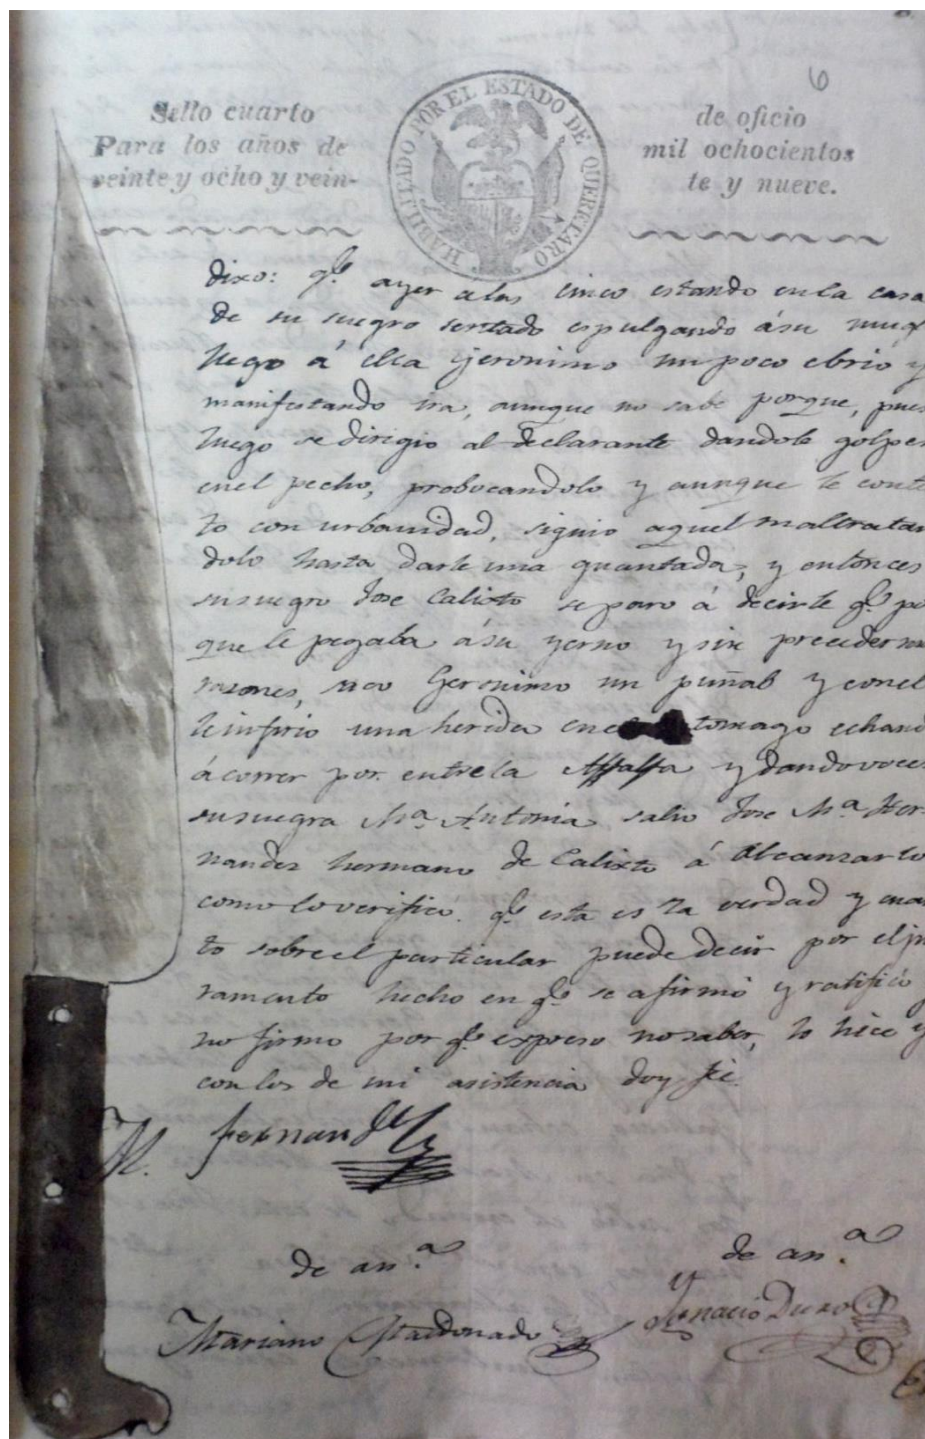 6
Sello cuarto
Para los años de
veinte y ocho y vein-
HABILITADO POR EL ESTADO DE QUERETARO
de oficio
mil ochocientos
te y nueve.
dixo: qe. ayer a las cinco estando en la casa
de su suegro sentado espulgando á su
llego á ella Geronimo un poco ebrio y
manifestando ira, aunque no sabe porque, pues
luego se dirigio al declarante dandole golpes
en el pecho, probocandolo y aunque le
to con urbanidad, siguio aquel maltratan
dolo hasta darle una guantada, y entonces
su suegro Jose Calixto se paro á decirle qe. po
que le pegaba á su yerno y sin preceder
rasones, saco Geronimo un puñal y con el
le infirio una herida en el tomago echand
á correr por entre la Alfalfa y dando voces
su suegra Ma. Antonia salio Jose Ma. Her-
nandes hermano de Calixto á alcansarlo
como lo verificó. qe. esta es la verdad y cuan
to sobre el particular puede decir por el ju
ramento hecho en qe. se afirmó y ratificó
no firmo por qe. expreso no saber, lo hice y
con los de mi asistencia doy fé.
M. Fernandez
de asa.
de asa.
Mariano Maldonado
Ygnacio Duzo